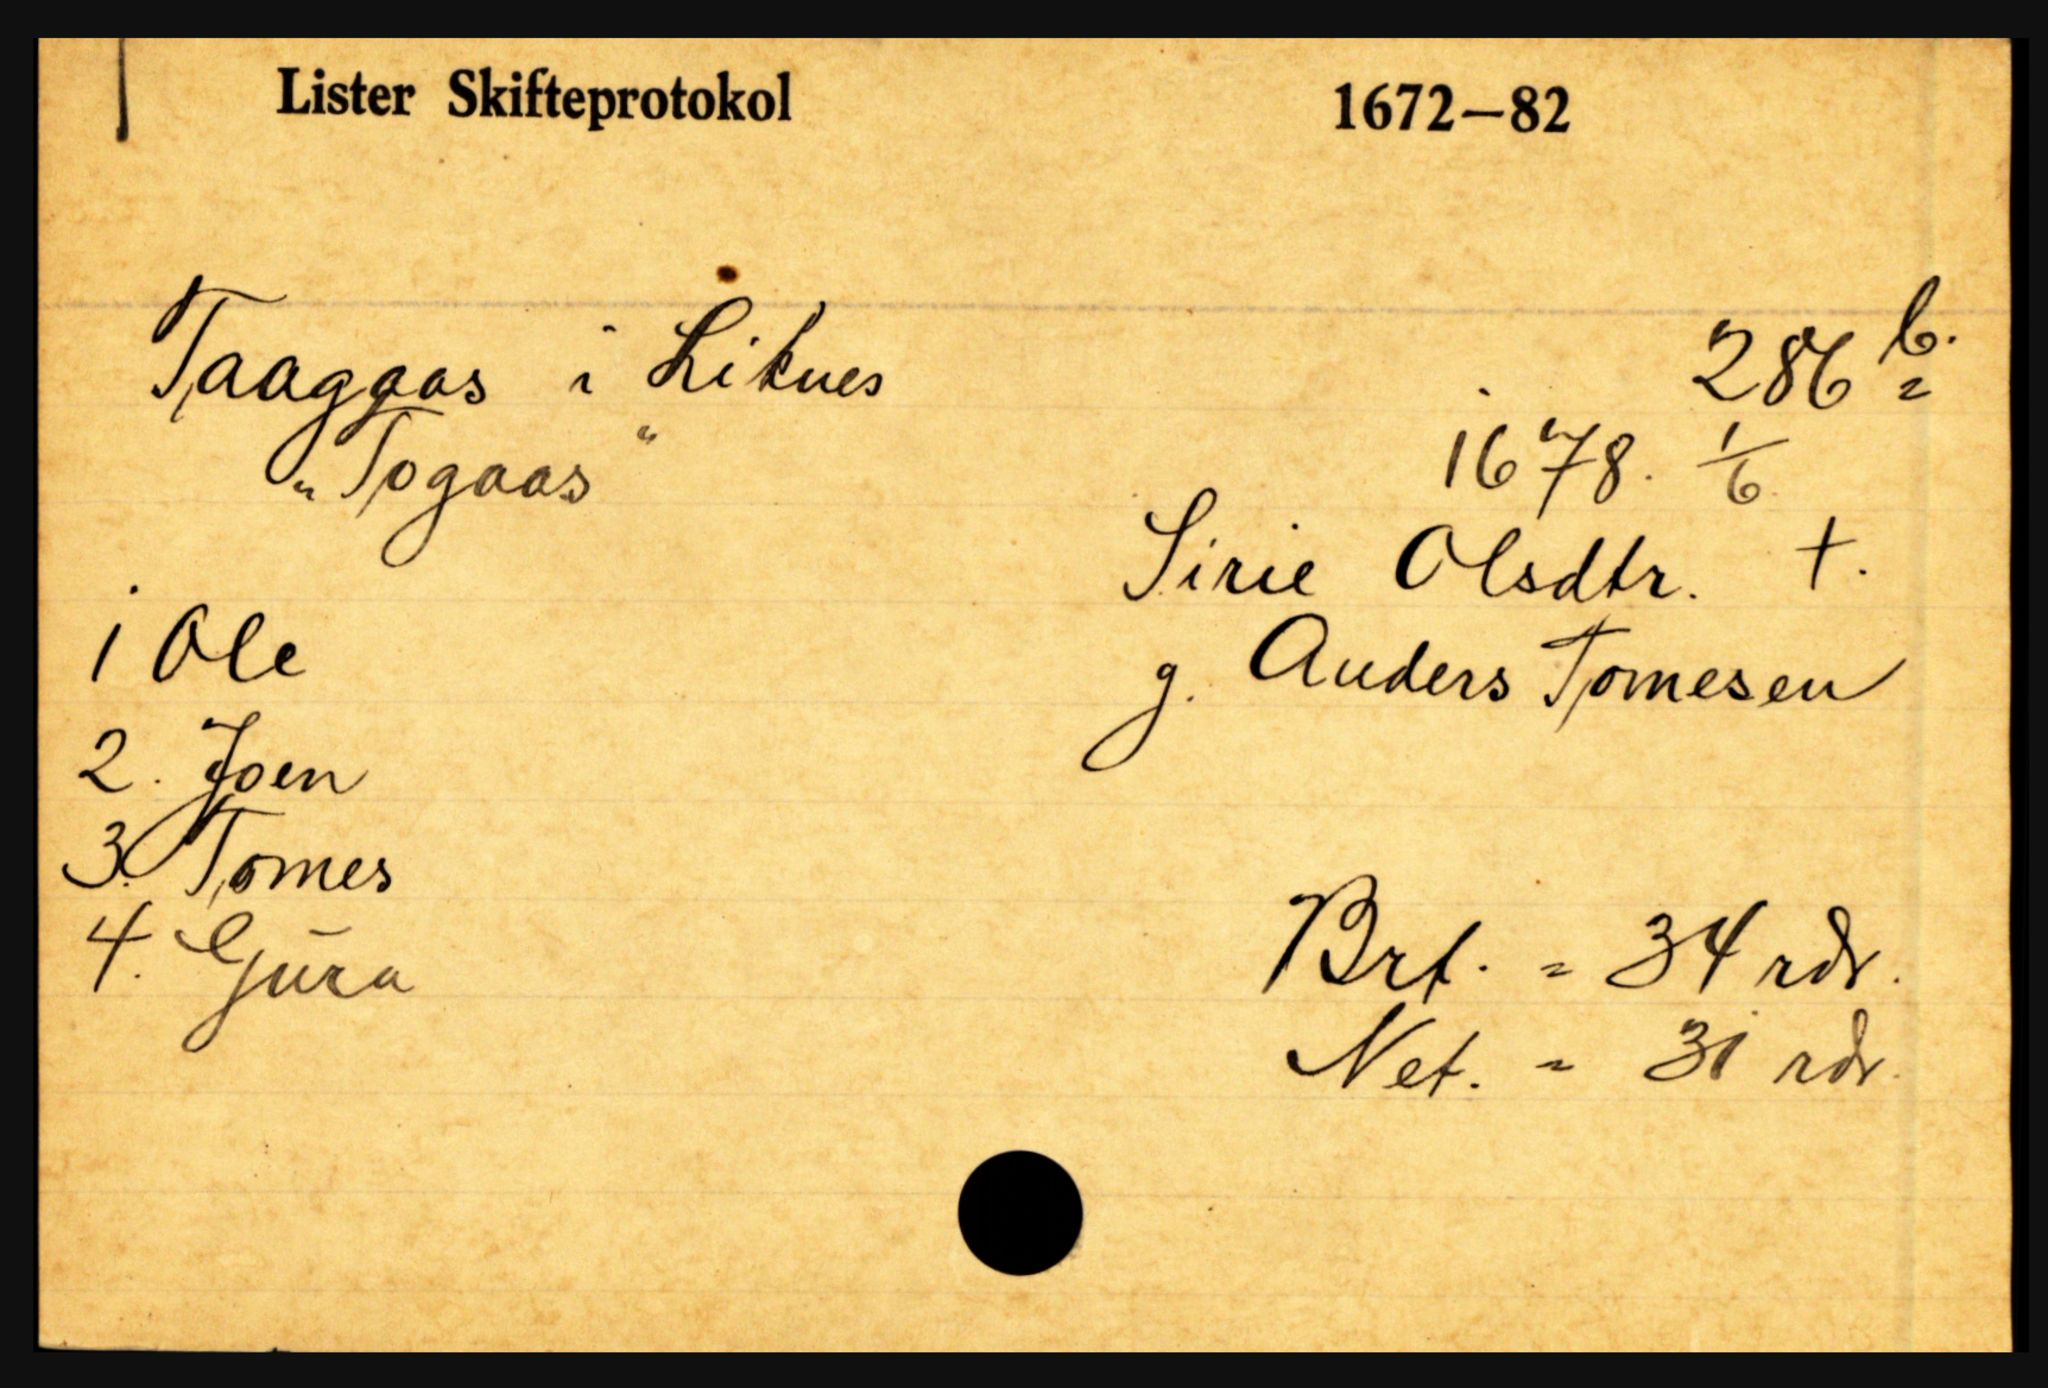 Lister Skifteprotokol 1672–82
Taagaas i Liknes 286 b.
"Togaas" 1678. 1/6
Sirie Olsdtr. †.
1 Ole
g. Anders Tomesen
2. Joen
3. Tomes
4. Gjúra
Brt. = 34 rdr.
Net. = 31 rdr.